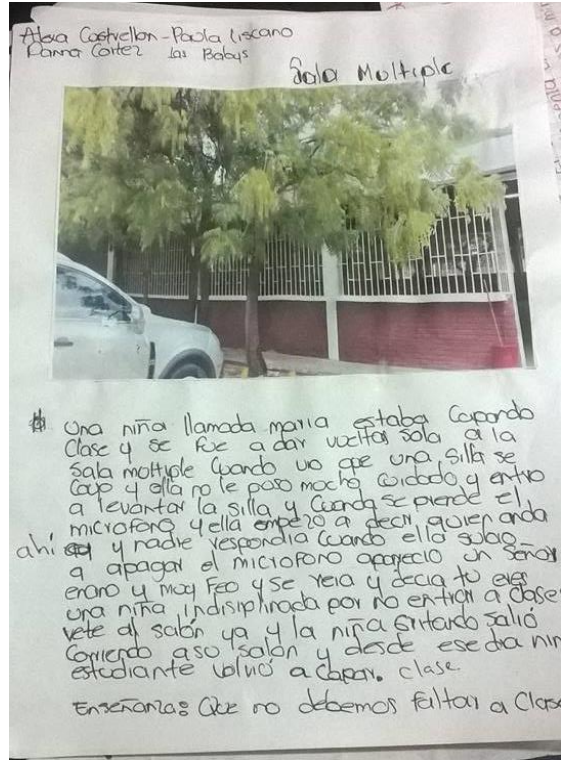 Alexa Castrellon - Paola Liscano
Danna Cortez las Babys
Sala Multiple
Una niña llamada maria estaba Capando
Clase y se fue a dar vueltas sola a la
Sala moltiple Cuando vio que una silla se
Cayo y ella no le puso mucho cuidado y entro
a levantar la silla y Cuando se prende el
microfono y ella empezo a decir, quien anda
ahí y nadie respondia Cuando ella subio
a apagar el microfono aparecio un Señor
enano y muy Feo y se reia y decia tu eres
una niña indisiplinada por no entrar a clase
vete al salón ya y la niña Gritando Salió
Corriendo a su Salón y desde ese dia nin
estudiante volvió a Capar. clase
Enseñanza: Que no debemos faltar a Clase